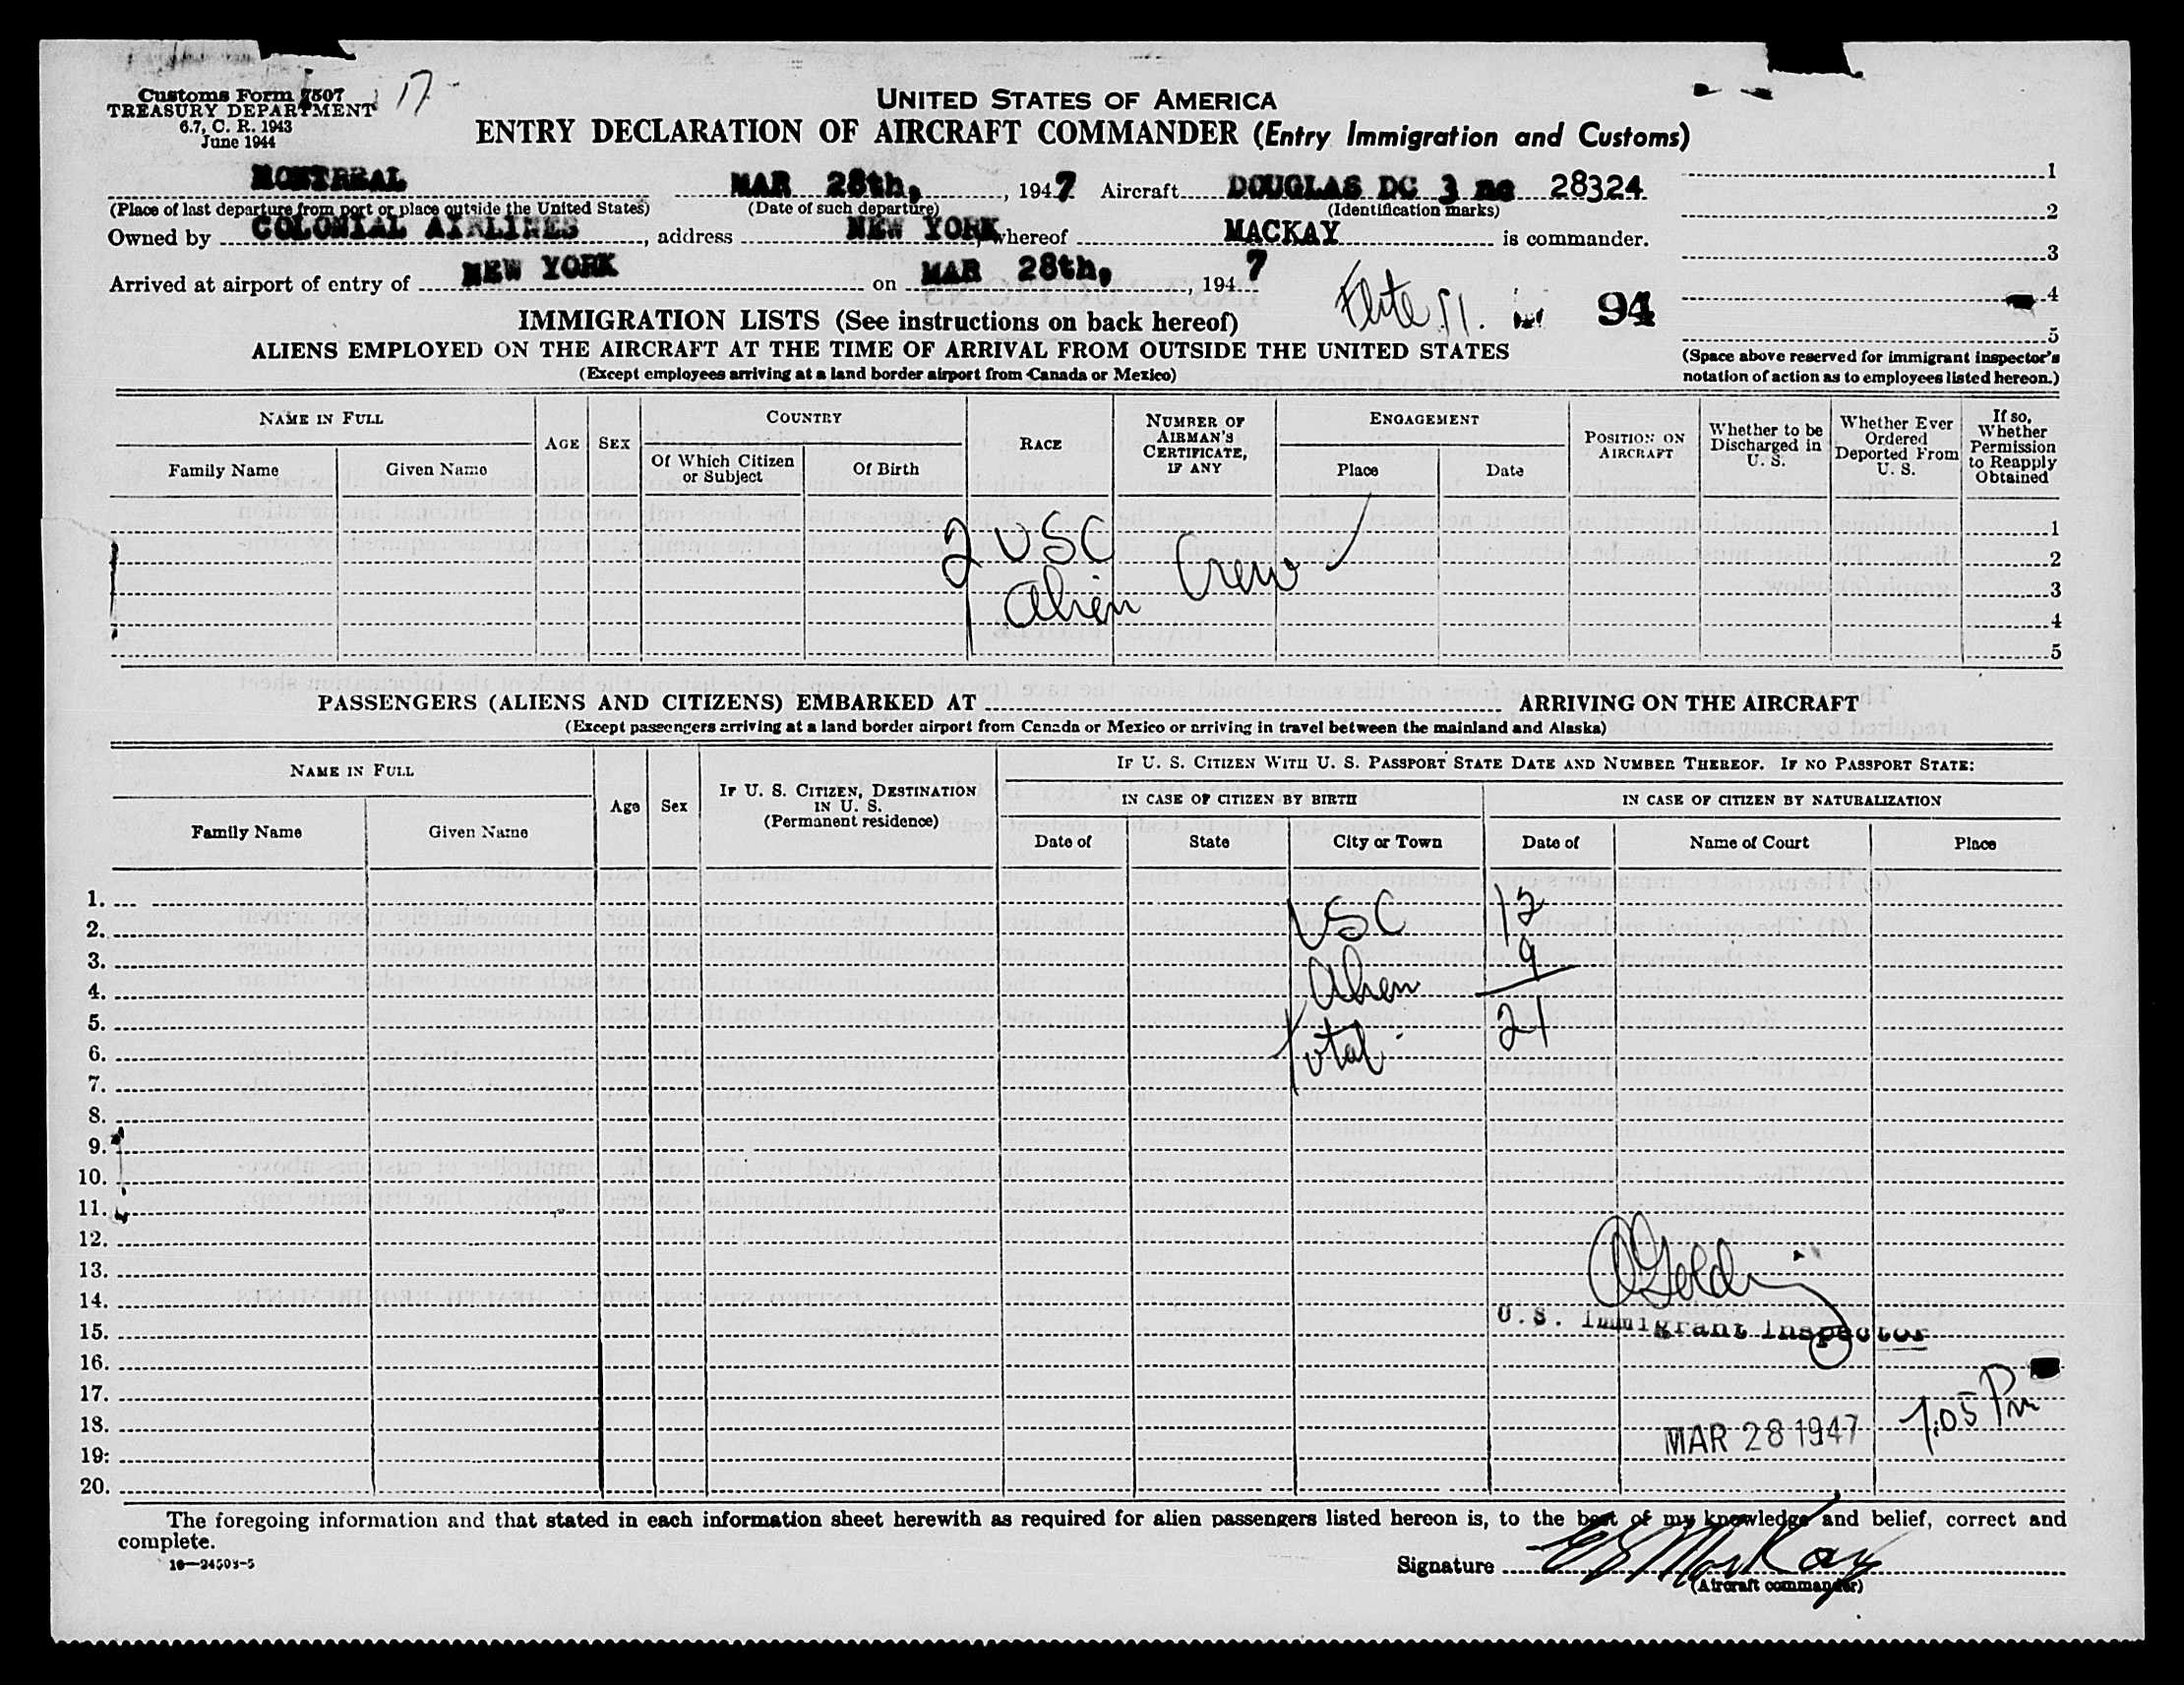 Customs Form 7507
TREASURY DEPARTMENT
6.7, C. R. 1943
June 1944
17
UNITED STATES OF AMERICA
ENTRY DECLARATION OF AIRCRAFT COMMANDER (Entry Immigration and Customs)
MONTREAL MAR 28th, , 1947 Aircraft DOUGLAS DC 3 nc 28324
(Place of last departure from port or place outside the United States) (Date of such departure) (Identification marks)
Owned by COLONIAL AIRLINES, address NEW YORK, whereof MACKAY is commander.
Arrived at airport of entry of NEW YORK on MAR 28th, , 1947
1
2
3
4
5
94
IMMIGRATION LISTS (See instructions on back hereof)
ALIENS EMPLOYED ON THE AIRCRAFT AT THE TIME OF ARRIVAL FROM OUTSIDE THE UNITED STATES
(Except employees arriving at a land border airport from Canada or Mexico)
(Space above reserved for immigrant inspector's
notation of action as to employees listed hereon.)
NAME IN FULL
Family Name
Given Name
AGE
SEX
COUNTRY
Of Which Citizen
or Subject
Of Birth
RACE
NUMBER OF
AIRMAN'S
CERTIFICATE,
IF ANY
ENGAGEMENT
Place
Date
POSITION ON
AIRCRAFT
Whether to be
Discharged in
U. S.
Whether Ever
Ordered
Deported From
U. S.
If so,
Whether
Permission
to Reapply
Obtained
1
2
3
4
5
2 USC
1 Alien
Crew
PASSENGERS (ALIENS AND CITIZENS) EMBARKED AT ARRIVING ON THE AIRCRAFT
(Except passengers arriving at a land border airport from Canada or Mexico or arriving in travel between the mainland and Alaska)
NAME IN FULL
Family Name
Given Name
Age
Sex
IF U. S. CITIZEN, DESTINATION
IN U. S.
(Permanent residence)
IF U. S. CITIZEN WITH U. S. PASSPORT STATE DATE AND NUMBER THEREOF. IF NO PASSPORT STATE:
IN CASE OF CITIZEN BY BIRTH
IN CASE OF CITIZEN BY NATURALIZATION
Date of
State
City or Town
Date of
Name of Court
Place
1.
2. USC 12
3. 9
4. Alien
5. 21
6. Total
7.
8.
9.
10.
11.
12.
13.
14.
15. U. S. Immigrant Inspector
16.
17.
18. MAR 28 1947 1:05 PM
19.
20.
The foregoing information and that stated in each information sheet herewith as required for alien passengers listed hereon is, to the best of my knowledge and belief, correct and
complete.
16—24503-5
Signature MacKay
(Aircraft commander)